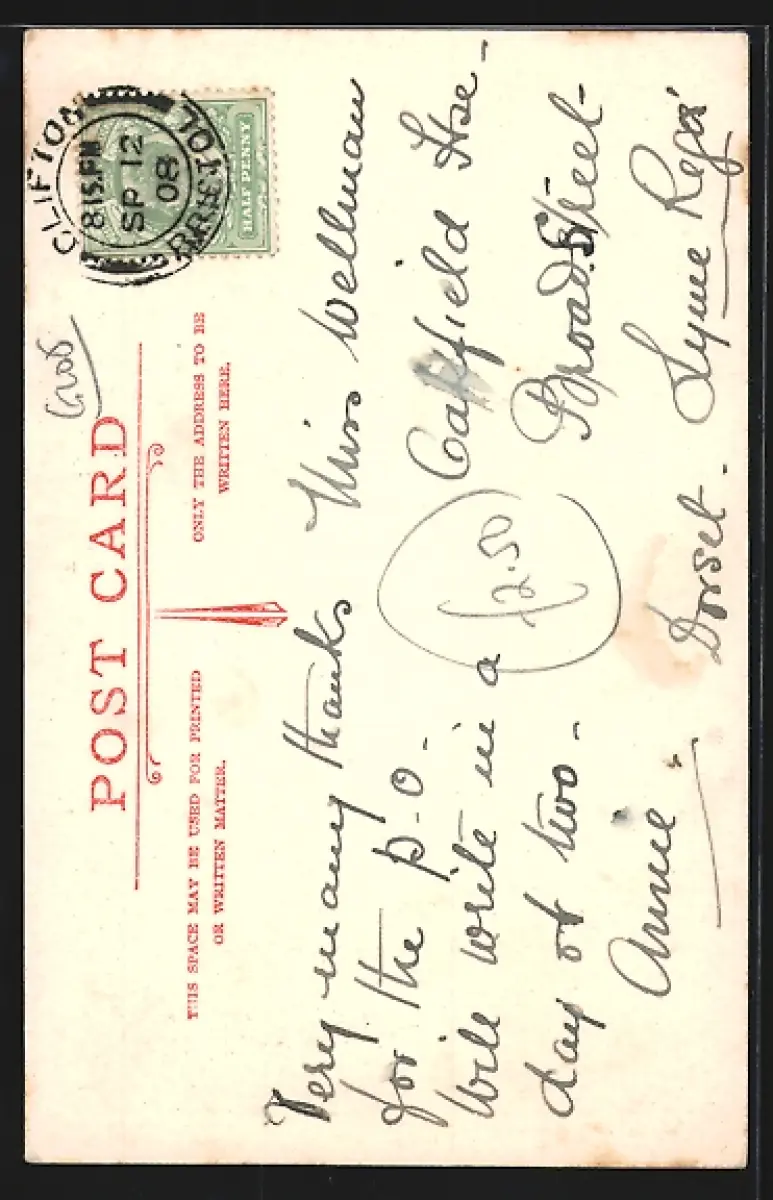 CLIFTON
8 15.PM
SP 12
08
BRISTOL
HALF PENNY
POST CARD
THIS SPACE MAY BE USED FOR PRINTED
OR WRITTEN MATTER.
ONLY THE ADDRESS TO BE
WRITTEN HERE.
Very many thanks
for the p.o -
Will write in a
day or two -
Annie
£2.50
Miss Wellman
Field Hse -
Broad Street -
Lyme Regis
Dorset.